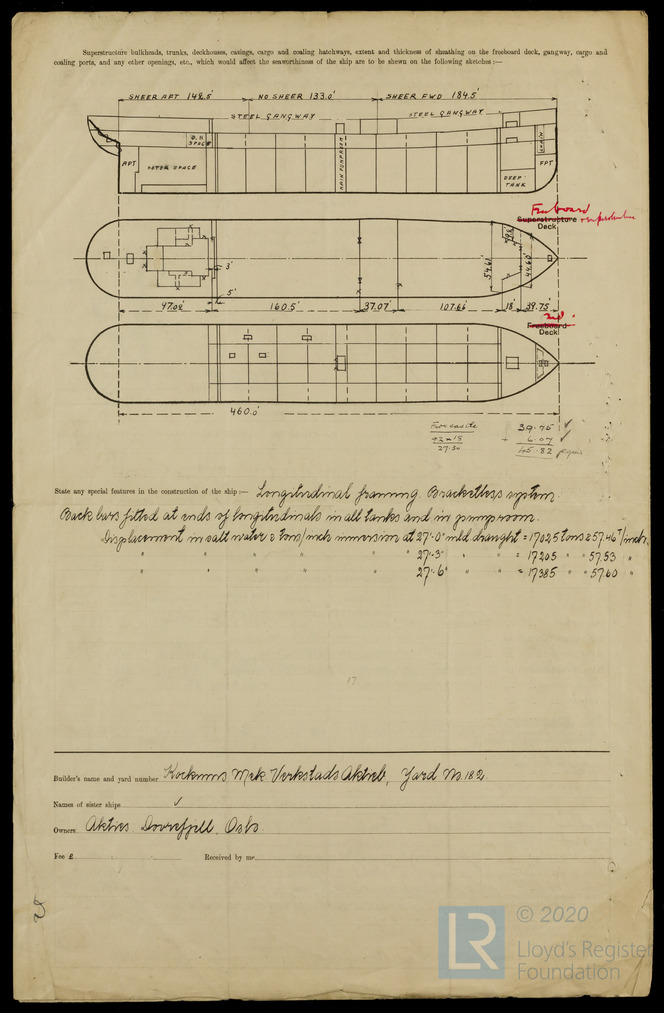 Superstructure bulkheads, trunks, deckhouses, casings, cargo and coaling hatchways, extent and thickness of sheathing on the freeboard deck, gangway, cargo and
coaling ports, and any other openings, etc., which would affect the seaworthiness of the ship are to be shewn on the following sketches :—
SHEER AFT 142.5' NO SHEER 133.0' SHEER FWD 184.5'
STEEL GANGWAY STEEL GANGWAY
SPACE
APT MOTOR SPACE MAIN PUMPROOM DEEP TANK CHAIN FPT
Freeboard
Superstructure
Deck
3' 54.61' 44.60'
5'
47.02' 160.5' 37.07' 107.66' 18' 39.75'
2nd
Freeboard
Deck
460.0'
Forecastle 39.75 ✓
+ 6.07 ✓
27.30 45.82
State any special features in the construction of the ship :— Longitudinal framing. Bracketless system.
Back bars fitted at ends of longitudinals in all tanks and in pumproom.
Displacement in salt water & tons/inch immersion at 27'.0" mld draught = 17025 tons & 57.46 T/inch.
" " " " " " 27'.3" " " = 17205 " " 57.53 "
" " " " " " 27'.6" " " = 17385 " " 57.60 "
17
Builder's name and yard number Kockums Mek Verkstads Aktieb, Yard No 182
Names of sister ships ✓
Owners Akties Dovrefjell, Oslo
Fee £ Received by me
© 2020
LR Lloyd's Register
Foundation